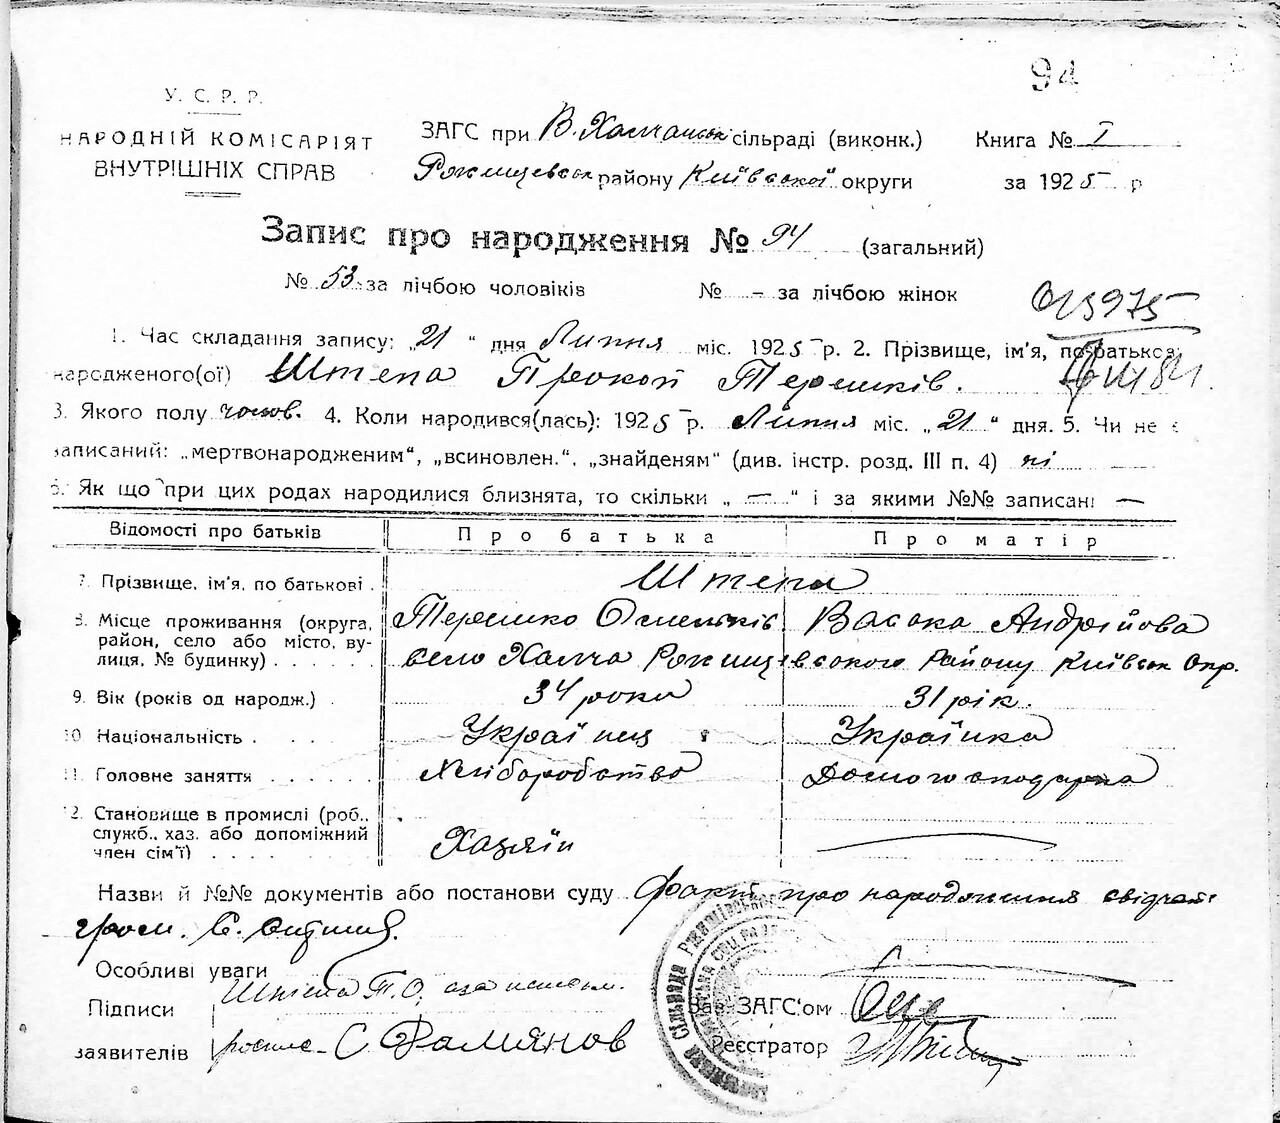 94
У. С. Р. Р.
НАРОДНІЙ КОМІСАРІЯТ
ВНУТРІШНІХ СПРАВ
ЗАГС при В. Халчанськ сільраді (виконк.)
Книга № I
Ржищевськ району Київської округи
за 1925 р
Запис про народження № 94 (загальний)
№ 53 за лічбою чоловіків № – за лічбою жінок
1. Час складання запису: „21" дня Липня міс. 1925 р. 2. Прізвище, ім'я, по-батьков.
народженого(ої) Штепа Прокоп Терешків.
3. Якого полу чолов. 4. Коли народився(лась): 1925 р. Липня міс. „21" дня. 5. Чи не є
записаний: „мертвонародженим", „всиновлен.", „знайденям" (див. інстр. розд. III п. 4) ні
6. Як що при цих родах народилися близнята, то скільки „ — " і за якими №№ записані —
Відомості про батьків Про батька Про матір
7. Прізвище, ім'я, по батькові . Штепа
8. Місце проживання (округа, Терешко Омельків. Васока Андрійова
район, село або місто, ву-
лиця, № будинку) . . . . . . село Халча Ржищевського Району Київськ Окр.
9. Вік (років од народж.) . 34 роки 31 рік.
10 Національність . . . . Українець Українка
11. Головне заняття . . . . . . Хліборобство Домогосподарка
12. Становище в промислі (роб.,
служб., хаз. або допоміжний
член сім'ї) . . . . Хазяїн
Назви й №№ документів або постанови суду Факт про народження свідчать
гром.
Особливі уваги
Підписи
Зав. ЗАГС'ом
заявителів С Дамянов
Реєстратор